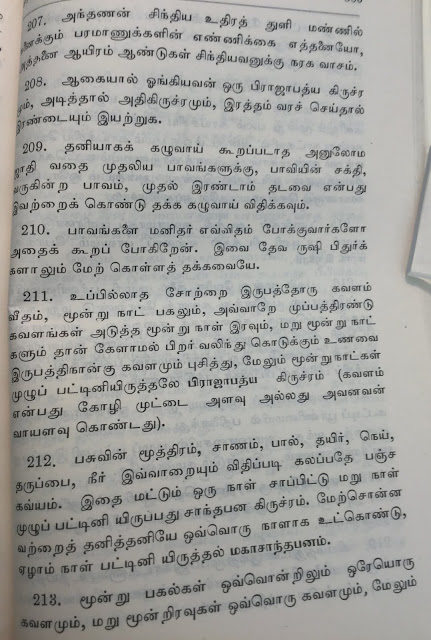 207. அந்தணன் சிந்திய உதிரத் துளி மண்ணில்
னைக்கும் பரமாணுக்களின் எண்ணிக்கை எத்தனையோ,
த்தனை ஆயிரம் ஆண்டுகள் சிந்தியவனுக்கு நரக வாசம்.
208. ஆகையால் ஓங்கியவன் ஒரு பிராஜாபத்ய கிருச்ர
மும், அடித்தால் அதிகிருச்ரமும், இரத்தம் வரச் செய்தால்
இரண்டையும் இயற்றுக.
209. தனியாகக் கழுவாய் கூறப்படாத அனுலோம
ஜாதி வதை முதலிய பாவங்களுக்கு, பாவியின் சக்தி,
வருகின்ற பாவம், முதல் இரண்டாம் தடவை என்பது
இவற்றைக் கொண்டு தக்க கழுவாய் விதிக்கவும்.
210. பாவங்களை மனிதர் எவ்விதம் போக்குவார்களோ
அதைக் கூறப் போகிறேன். இவை தேவ ருஷி பிதுர்க்
களாலும் மேற் கொள்ளத் தக்கவையே.
211. உப்பில்லாத சோற்றை இருபத்தோரு கவளம்
வீதம், மூன்று நாட் பகலும், அவ்வாறே முப்பத்திரண்டு
கவளங்கள் அடுத்த மூன்று நாள் இரவும், மறு மூன்று நாட்
களும் தான் கேளாமல் பிறர் வலிந்து கொடுக்கும் உணவை
இருபத்திநான்கு கவளமும் புசித்து, மேலும் மூன்று நாட்கள்
முழுப் பட்டினியிருத்தலே பிராஜாபத்ய கிருச்ரம் (கவளம்
என்பது கோழி முட்டை அளவு அல்லது அவனவன்
வாயளவு கொண்டது).
212. பசுவின் மூத்திரம், சாணம், பால், தயிர், நெய்,
தருப்பை, நீர் இவ்வாறையும் விதிப்படி கலப்பதே பஞ்ச
கவ்யம். இதை மட்டும் ஒரு நாள் சாப்பிட்டு மறு நாள்
முழுப் பட்டினி யிருப்பது சாந்தபன கிருச்ரம். மேற்சொன்ன
வற்றைத் தனித்தனியே ஒவ்வொரு நாளாக உட்கொண்டு,
ஏழாம் நாள் பட்டினி யிருத்தல் மகாசாந்தபனம்.
213. மூன்று பகல்கள் ஒவ்வொன்றிலும் ஒரேயொரு
கவளமும், மறு மூன்றிரவுகள் ஒவ்வொரு கவளமும், மேலும்